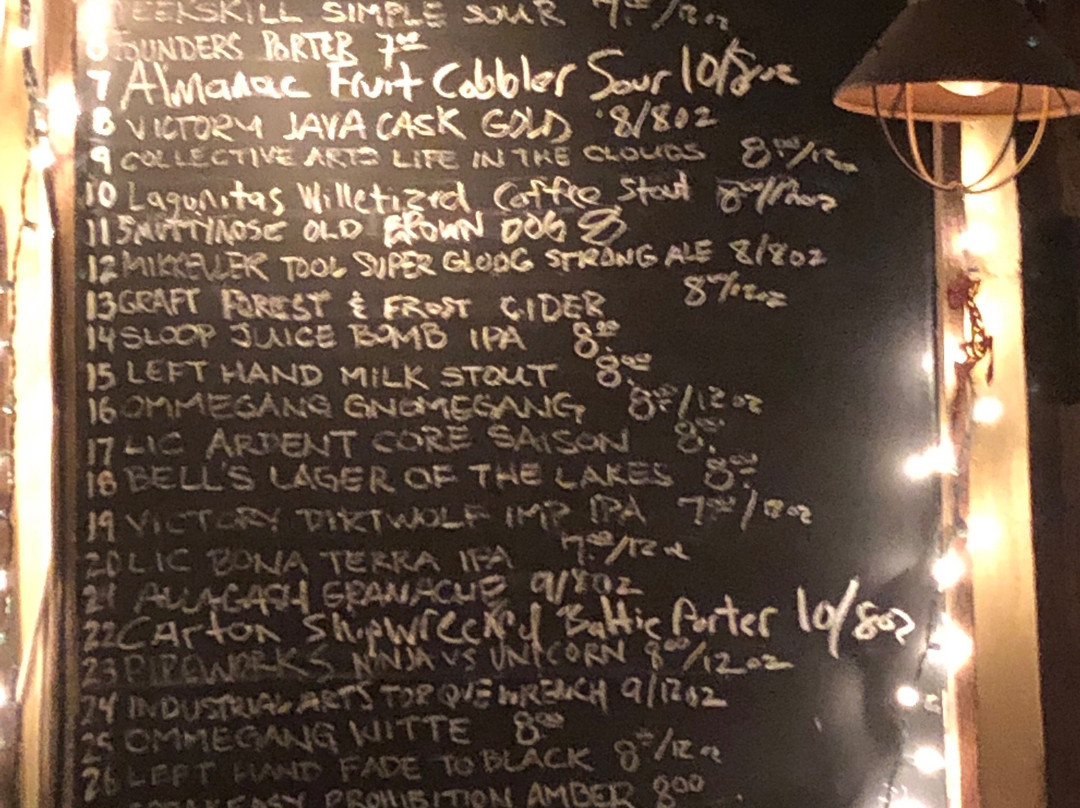 PEEKSKILL SIMPLE SOUR 7.00/12oz
6 FOUNDERS PORTER 7.00
7 Almanac Fruit Cobbler Sour 10/8oz
8 VICTORY JAVA CASK GOLD 8/8oz
9 COLLECTIVE ARTS LIFE IN THE CLOUDS 8.00/12oz
10 Lagunitas Willetized Coffee Stout 8.00/12oz
11 SMUTTYNOSE OLD BROWN DOG 8
12 MIKKELLER TOOL SUPER GLOOG STRONG ALE 8/8oz
13 GRAFT FOREST & FROST CIDER 8.00/12oz
14 SLOOP JUICE BOMB IPA 8.00
15 LEFT HAND MILK STOUT 8.00
16 OMMEGANG GNOMEGANG 8.00/12oz
17 LIC ARDENT CORE SAISON 8.00
18 BELL'S LAGER OF THE LAKES 8.00
19 VICTORY DIRTWOLF IMP IPA 7.00/12oz
20 LIC BONA TERRA IPA 7.00/12oz
21 ALLAGASH GRANACHE 9/8oz
22 Carton Shipwrecked Baltic Porter 10/8oz
23 PIPEWORKS NINJA VS UNICORN 8.00/12oz
24 INDUSTRIAL ARTS TORQUE WRENCH 9/12oz
25 OMMEGANG WITTE 8.00
26 LEFT HAND FADE TO BLACK 8.00/12oz
SPEAKEASY PROHIBITION AMBER 8.00